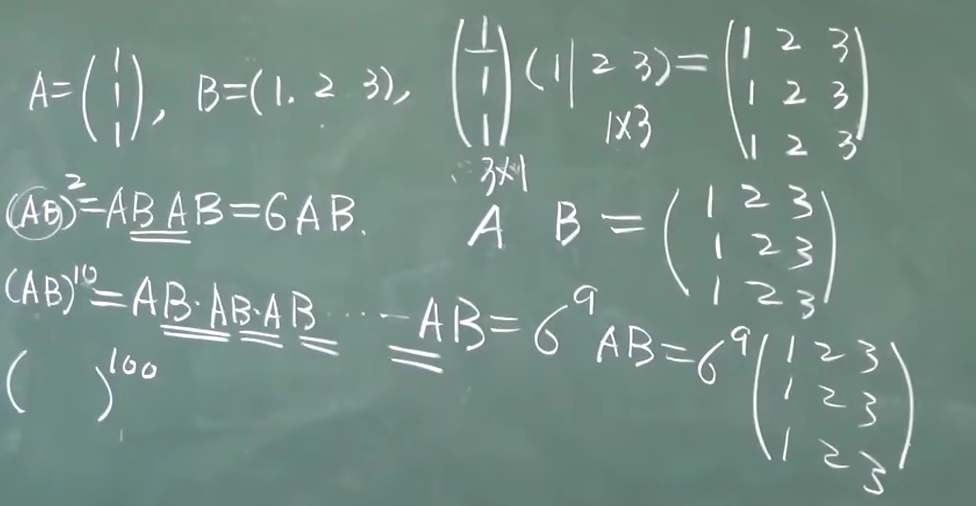 A=(1 1 1), B=(1. 2 3), (1 1 1) (1 | 2 3)=(1 2 3
1 2 3
1 2 3)
3×1 1×3
(AB)²=ABAB=6AB. A B = (1 2 3
1 2 3
1 2 3)
(AB)¹⁰=AB·AB·AB⋯-AB=6⁹AB=6⁹(1 2 3
1 2 3
1 2 3)
( )¹⁰⁰